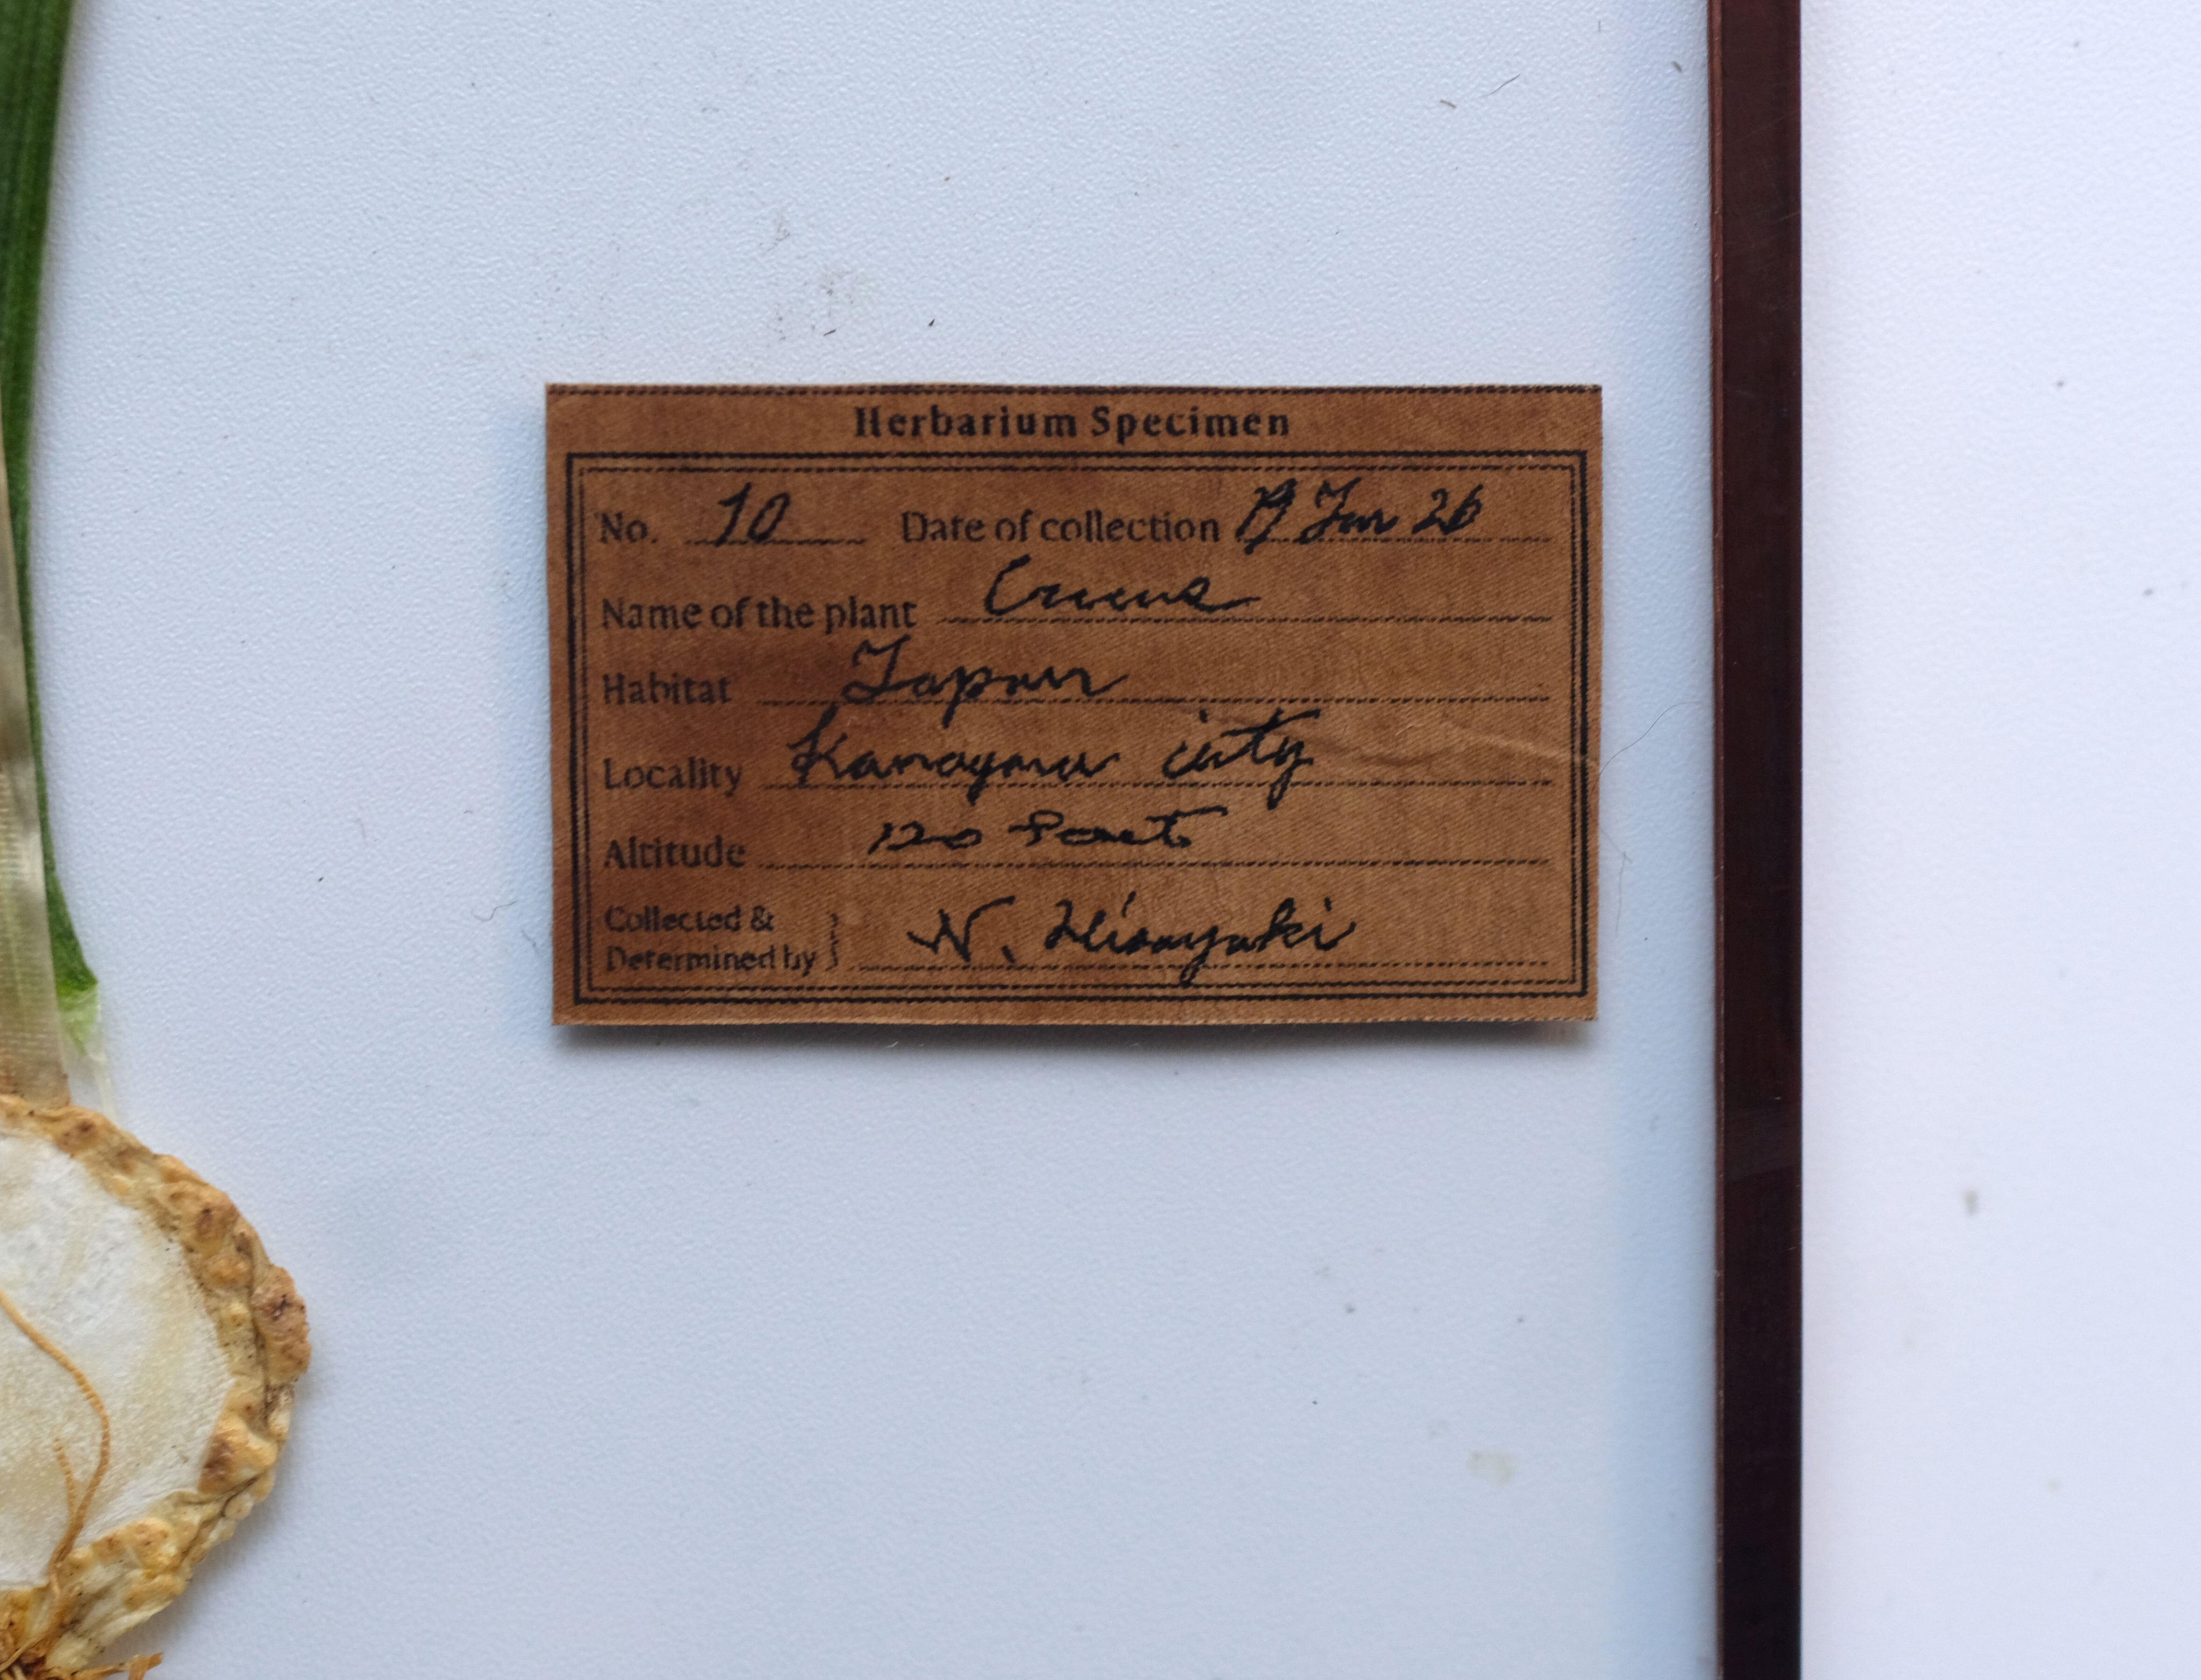 Herbarium Specimen
No. 10 Date of collection 19 Jan 26
Name of the plant Crocus
Habitat Japan
Locality Kanayama city
Altitude 120 Feet
Collected &
Determined by } N. Hisayuki